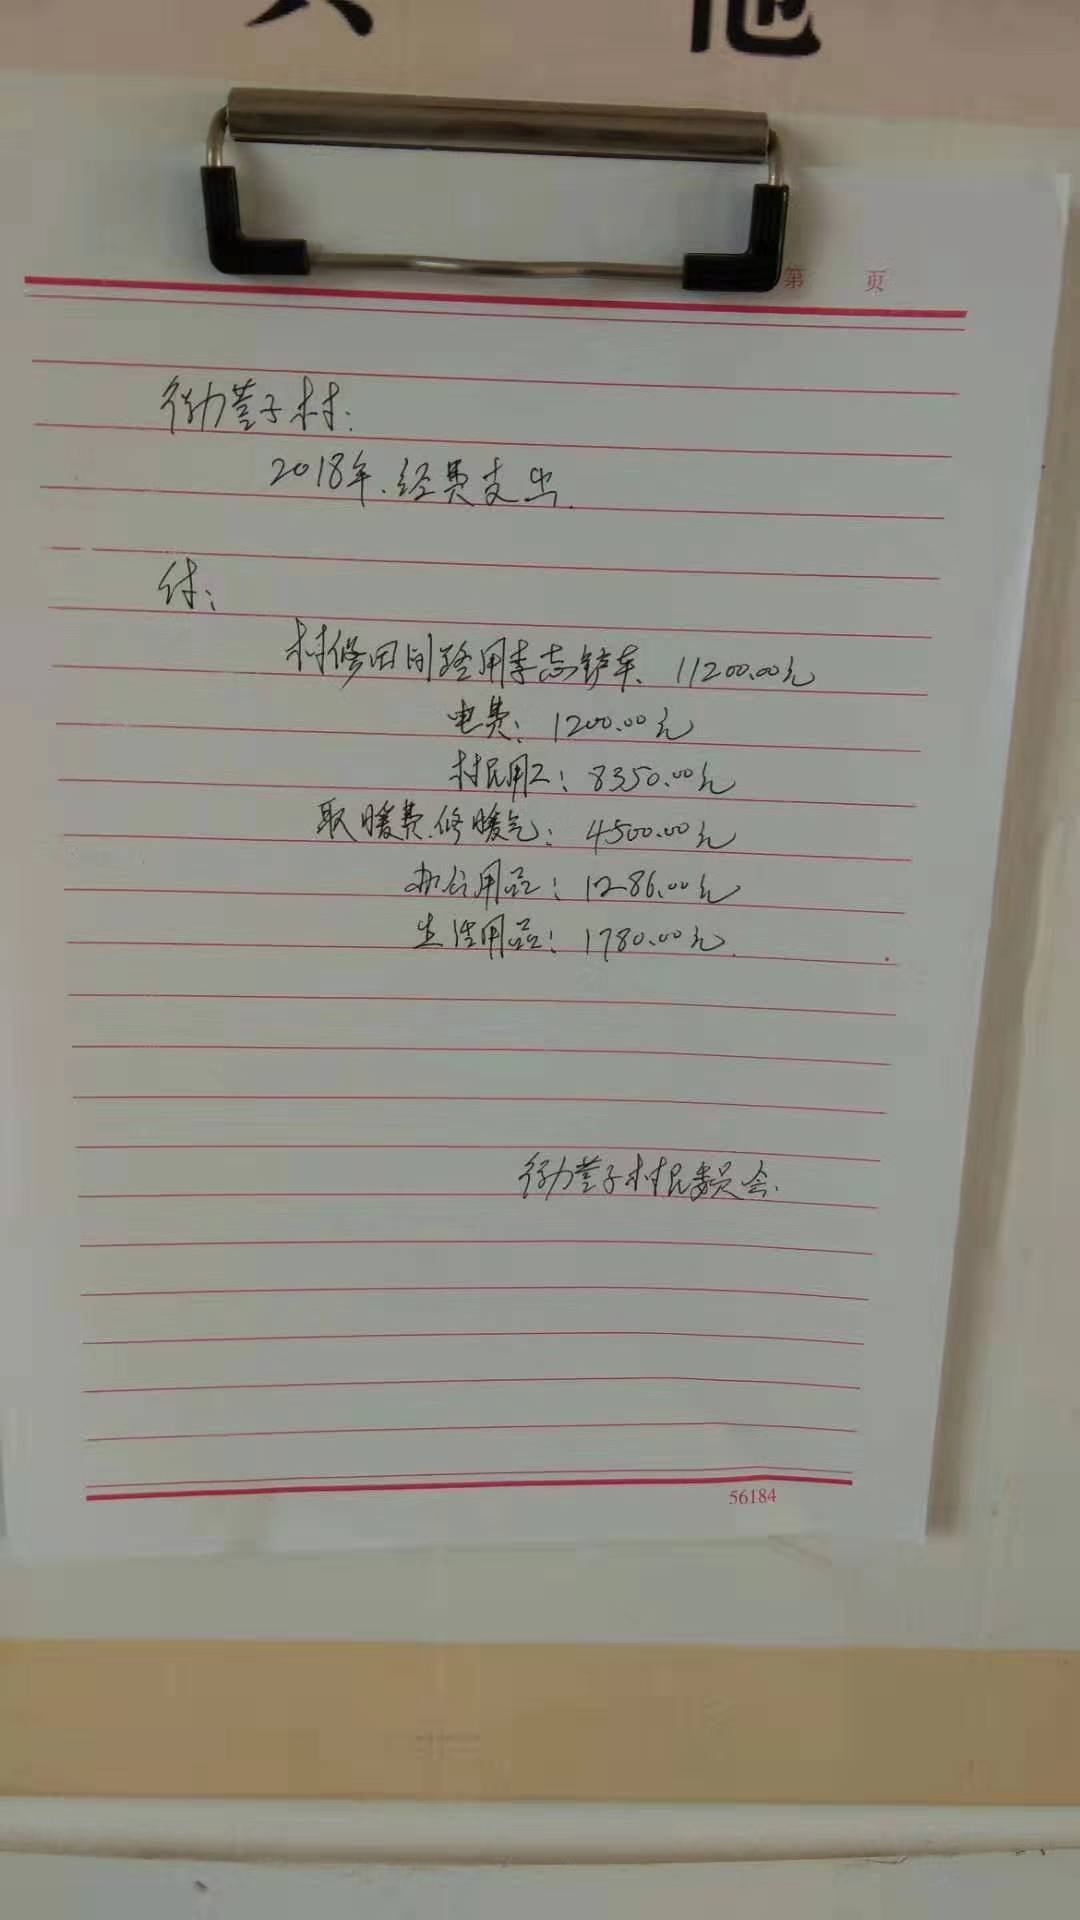 其 他
第 页
村:
2018年.经费支出.
付:
村修田间路用李志铲车. 11200.00元
电费: 1200.00元
村民用工: 8350.00元
取暖费.修暖气: 4500.00元
办公用品: 1286.00元
生活用品: 1780.00元.
营子村民委员会.
56184